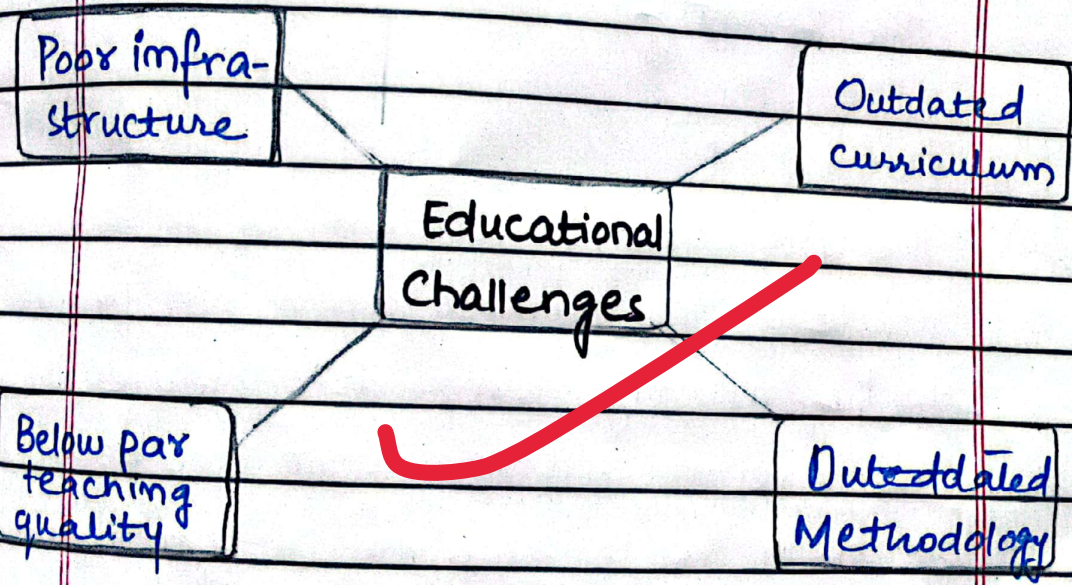 Poor infra-
structure
Outdated
curriculum
Educational
Challenges
Below par
teaching
quality
Outdated
Methodology